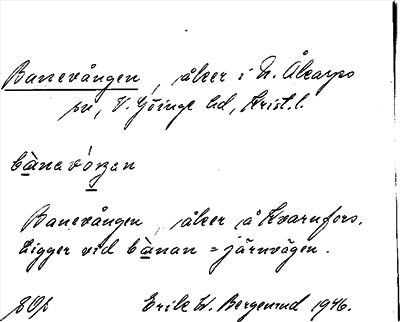 Banevången, åker i N. Åkarps
sn, V. Göinge hd, Krist. l.
bànavóŋan
Banevången, åker å Kvarnfors.
Ligger vid bànan = järnvägen.
Erik W. Bergenrud 1946.